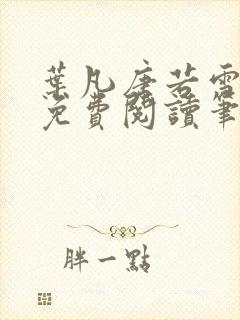 葉凡唐若雪
免費閱讀筆
胖一點